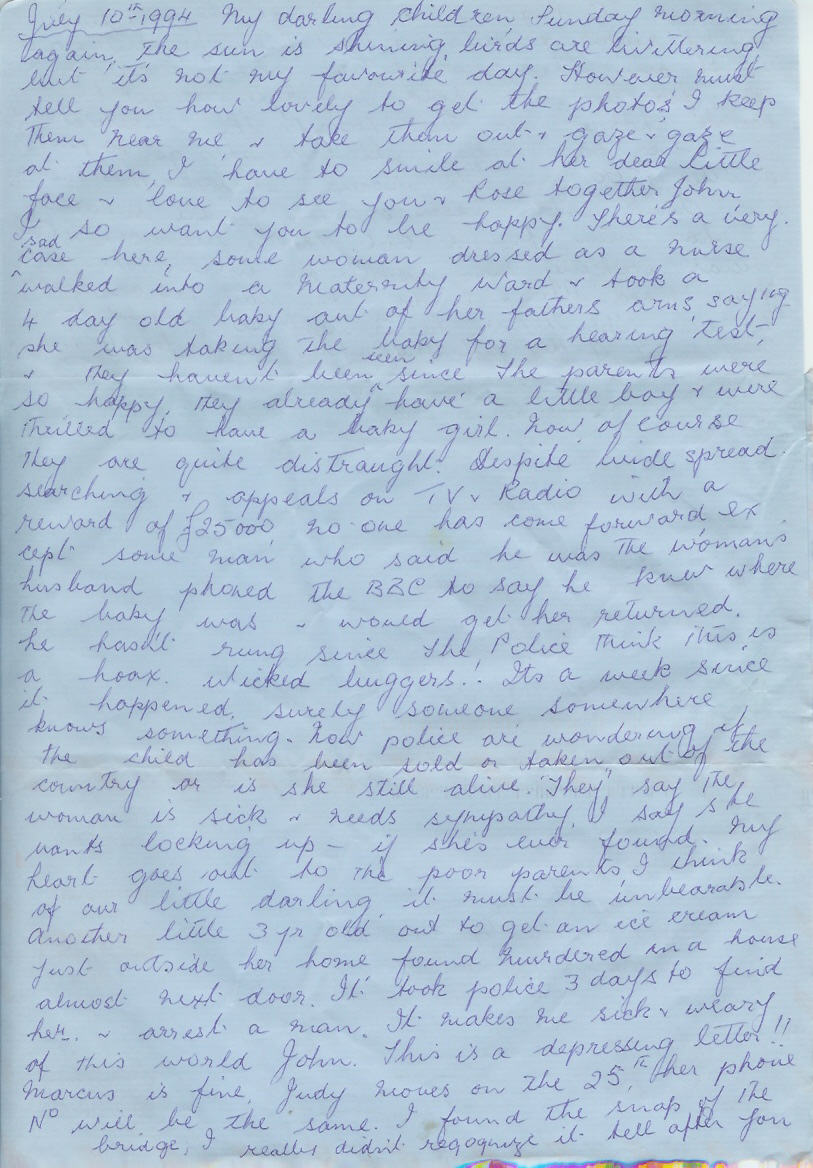 July 10th 1994 My darling children, Sunday morning
again, the sun is shining, birds are twittering
but it's not my favourite day. However must
tell you how lovely to get the photos, I keep
them near me & take them out & gaze & gaze
at them, I have to smile at her dear little
face & love to see you & Rose together John
I so want you to be happy. There's a very
sad
case here, some woman dressed as a nurse
walked into a Maternity Ward & took a
4 day old baby out of her fathers arms saying
she was taking the baby for a hearing test,
& they haven't been seen since The parents were
so happy, they already have a little boy & were
thrilled to have a baby girl. Now of course
they are quite distraught. Despite wide spread
searching & appeals on TV & Radio with a
reward of £25000 no one has come forward ex
cept some man who said he was the woman's
husband phoned the BBC to say he knew where
the baby was & would get her returned.
he hasn't rung since The Police think this is
a hoax. Wicked buggers!! Its a week since
it happened, surely someone somewhere
knows something. Now police are wondering if
the child has been sold or taken out of the
country or is she still alive. "They" say the
woman is sick & needs sympathy, I say she
wants locking up – if she's ever found. My
heart goes out to the poor parents I think
of our little darling, it must be unbearable.
Another little 3 yr old out to get an ice cream
just outside her home found murdered in a house
almost next door. It took police 3 days to find
her. & arrest a man. It makes me sick & weary
of this world John. This is a depressing letter!!
Marcus is fine, Judy moves on the 25th, her phone
No will be the same. I found the snap of the
bridge, I really didn't regognize it tell after you